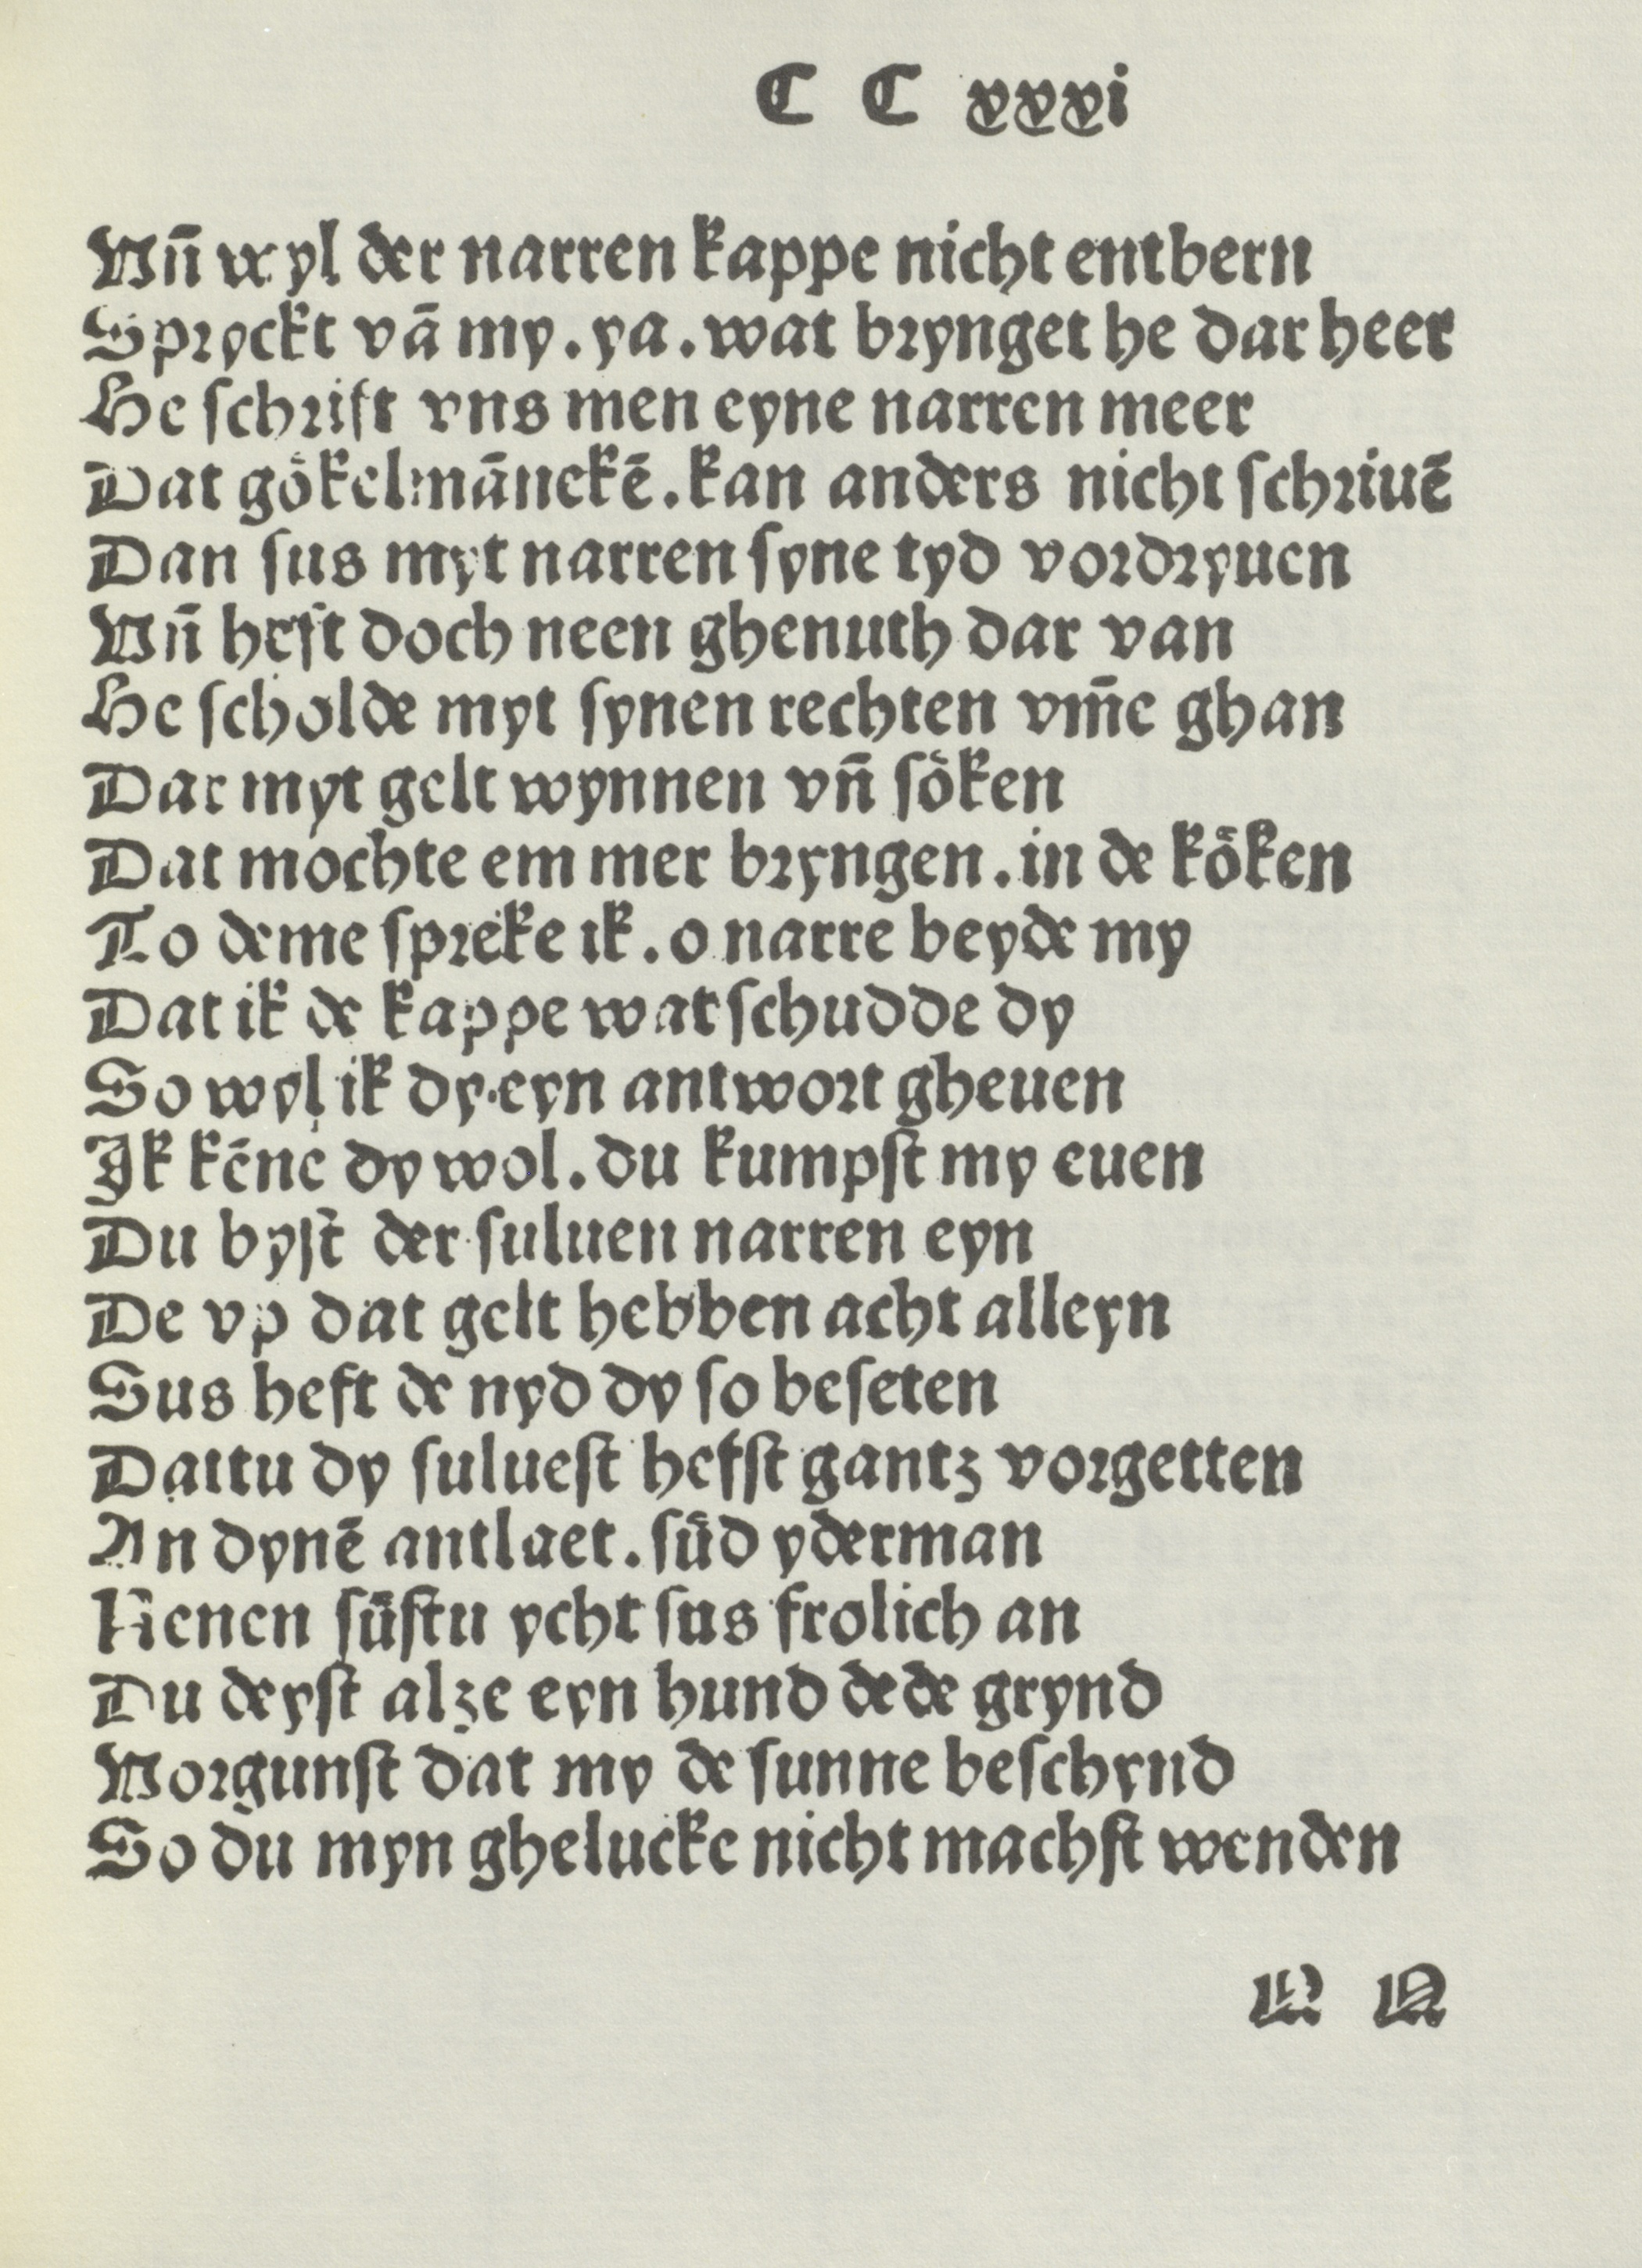 C C xxxvi
Vn̄ wyl der narren kappe nicht entbern
Spryckt vā my . ya . wat brynget he dar heer
He ſchrift vns men eyne narren meer
Dat gökelmānekē . kan anders nicht ſchriuē
Dan ſus myt narren ſyne tyd vordryuen
Vn̄ heft doch neen ghenuth dar van
He ſcholde myt ſynen rechten vm̄e ghan
Dar myt gelt wynnen vn̄ ſöken
Dat mochte em mer bryngen . in de köken
To deme ſpreke ik . o narre beyde my
Dat ik de kappe wat ſchudde dy
So wyl ik dy eyn antwort gheuen
Ik kēne dy wol . du kumpſt my euen
Du byſt der ſuluen narren eyn
De vp dat gelt hebben acht alleyn
Sus heft de nyd dy ſo beſeten
Dattu dy ſulueſt hefſt gantz vorgetten
An dynē antlaet . ſüd yderman
Nenen ſüſtu ycht ſus frolich an
Du deyſt alze eyn hund de de grynd
Vorgunſt dat my de ſunne beſchynd
So du myn ghelucke nicht machſt wenden